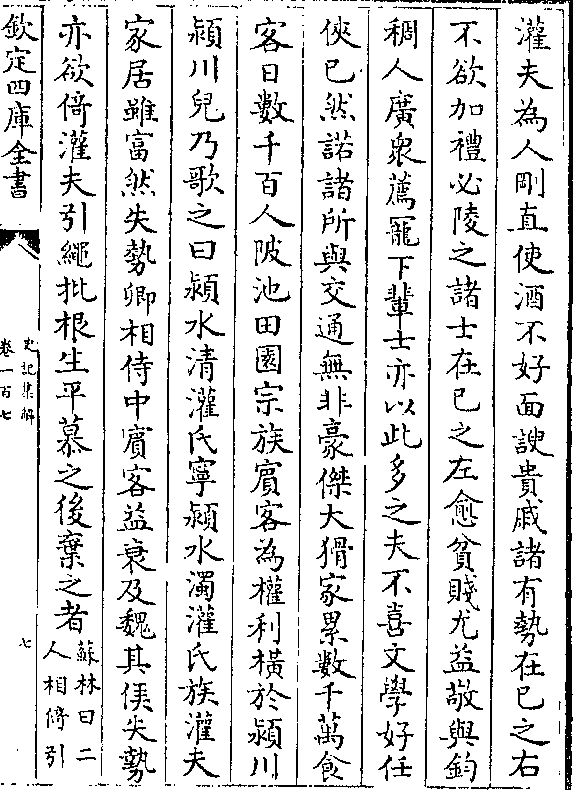 灌夫為人剛直使酒不好面諛貴戚諸有勢在已之右
不欲加禮必陵之諸士在已之左愈貧賤尤益敬與鈞
稠人廣衆薦寵下輩士亦以此多之夫不喜文學好任
俠已然諾諸所與交通無非豪傑大猾家累數千萬食
客日數千百人陂池田園宗族賓客為權利橫於潁川
潁川兒乃歌之曰潁水清灌氏寧潁水濁灌氏族灌夫
家居雖富然失勢卿相侍中賓客益衰及魏其侯失勢
亦欲倚灌夫引繩批根生平慕之後棄之者
蘇林曰二
人相倚引
欽定四庫全書
史記集解
卷一百七
七